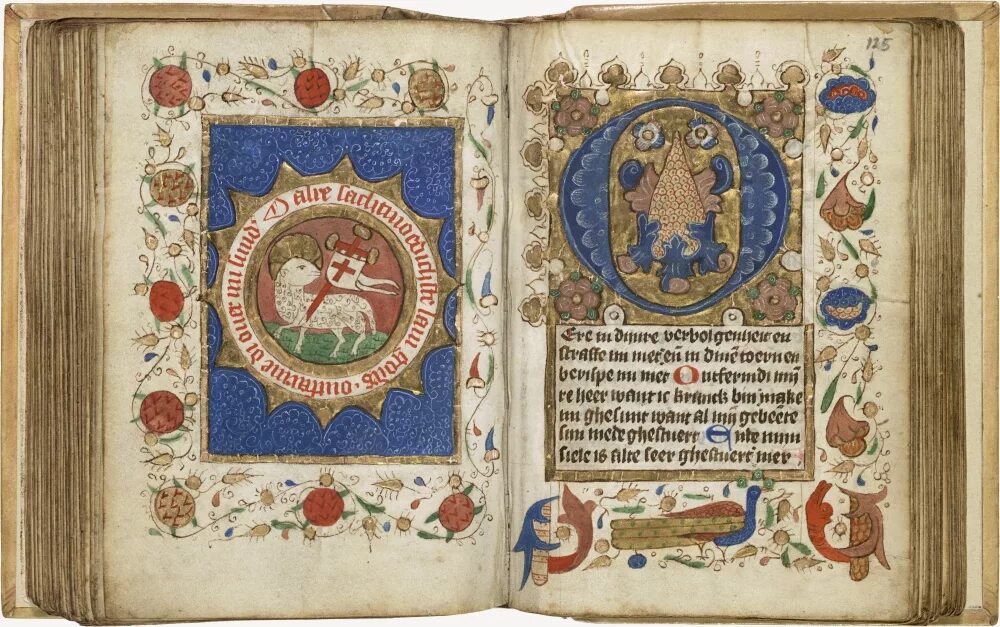 O alre sachtmoedichste lam godes · ontfarme di ouer mi sund'
125
Ere in dinre verbolgenheit en
straffe mi niet eñ in dinē toern en
berispe mi niet Ontfermdi mij
re heer want ic kranck bin make
mi ghesunt want al mijn gebeente
sin mede ghestuert Ende mijn
siele is alte seer ghestuert mer